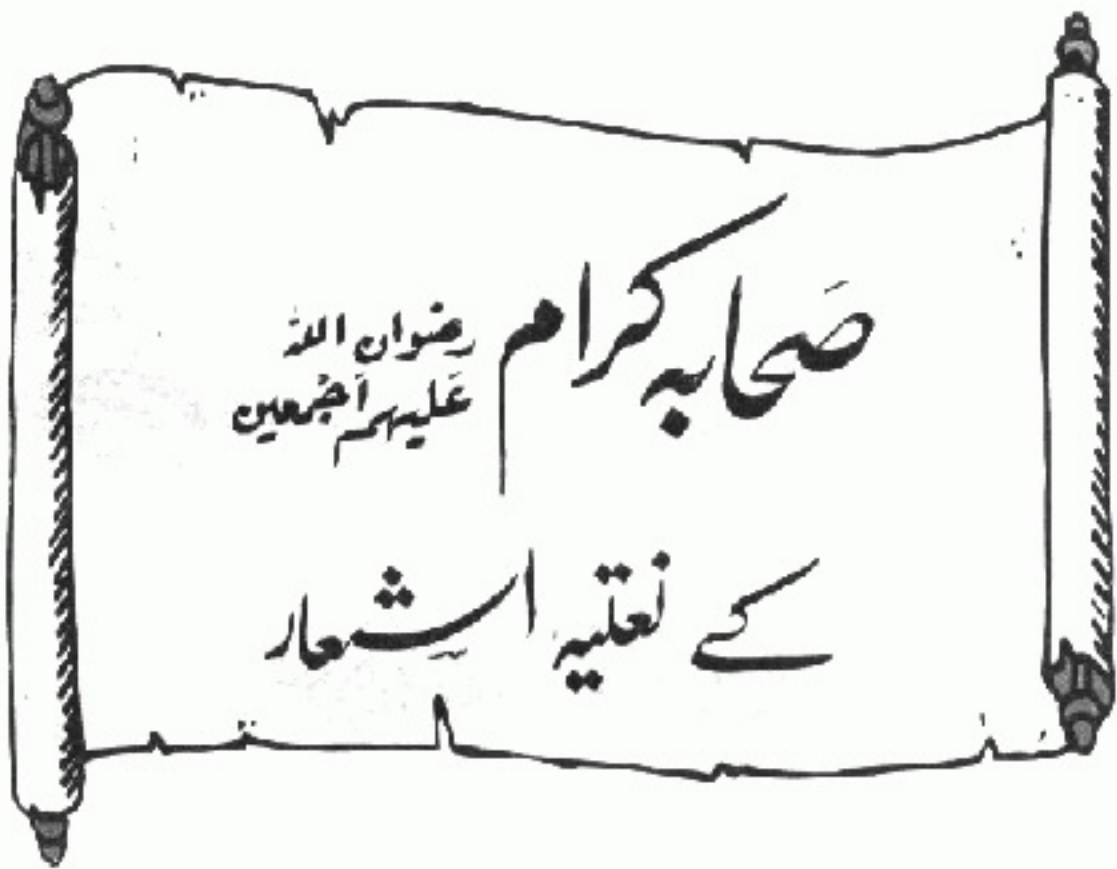 صحابہ کرام رضوان اللہ
علیہم اجمعین
کے نعتیہ اشعار